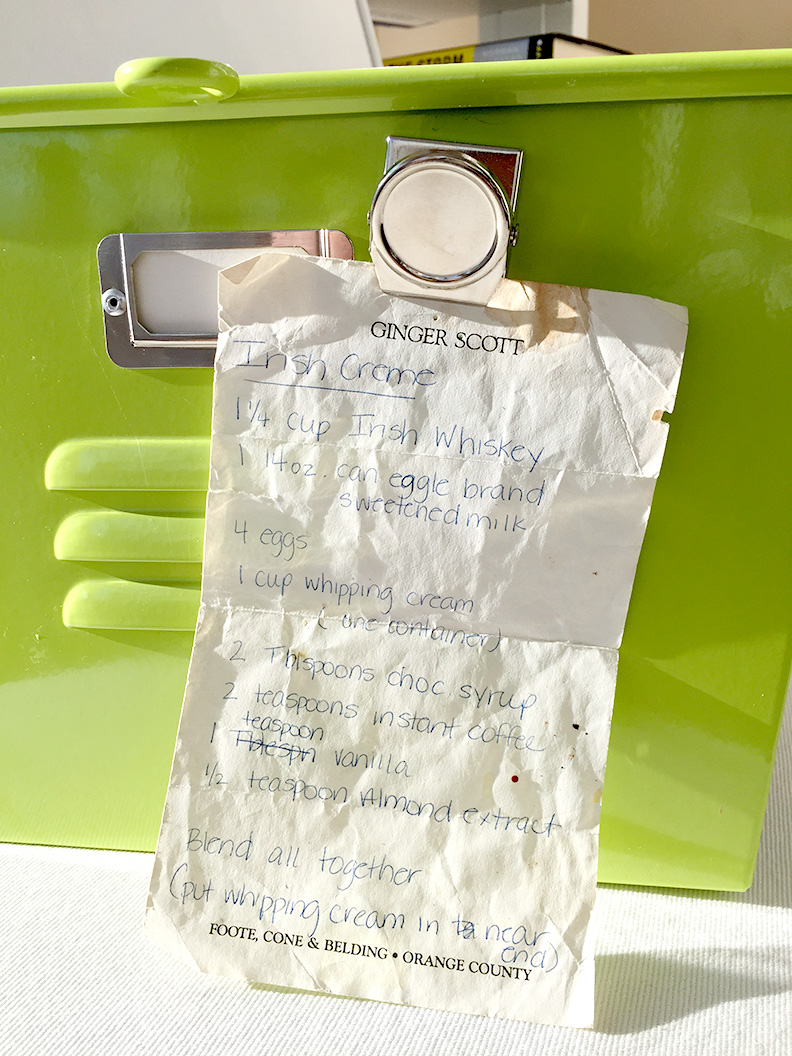 GINGER SCOTT
Irish Creme
1 1/4 cup Irish Whiskey
1 14oz. can eggle brand
sweetened milk
4 eggs
1 cup whipping cream
( one container)
2 Tblspoons choc syrup
2 teaspoons instant coffee
teaspoon
1 Tblespn vanilla
1/2 teaspoon Almond extract
Blend all together
(put whipping cream in near
end)
FOOTE, CONE & BELDING • ORANGE COUNTY